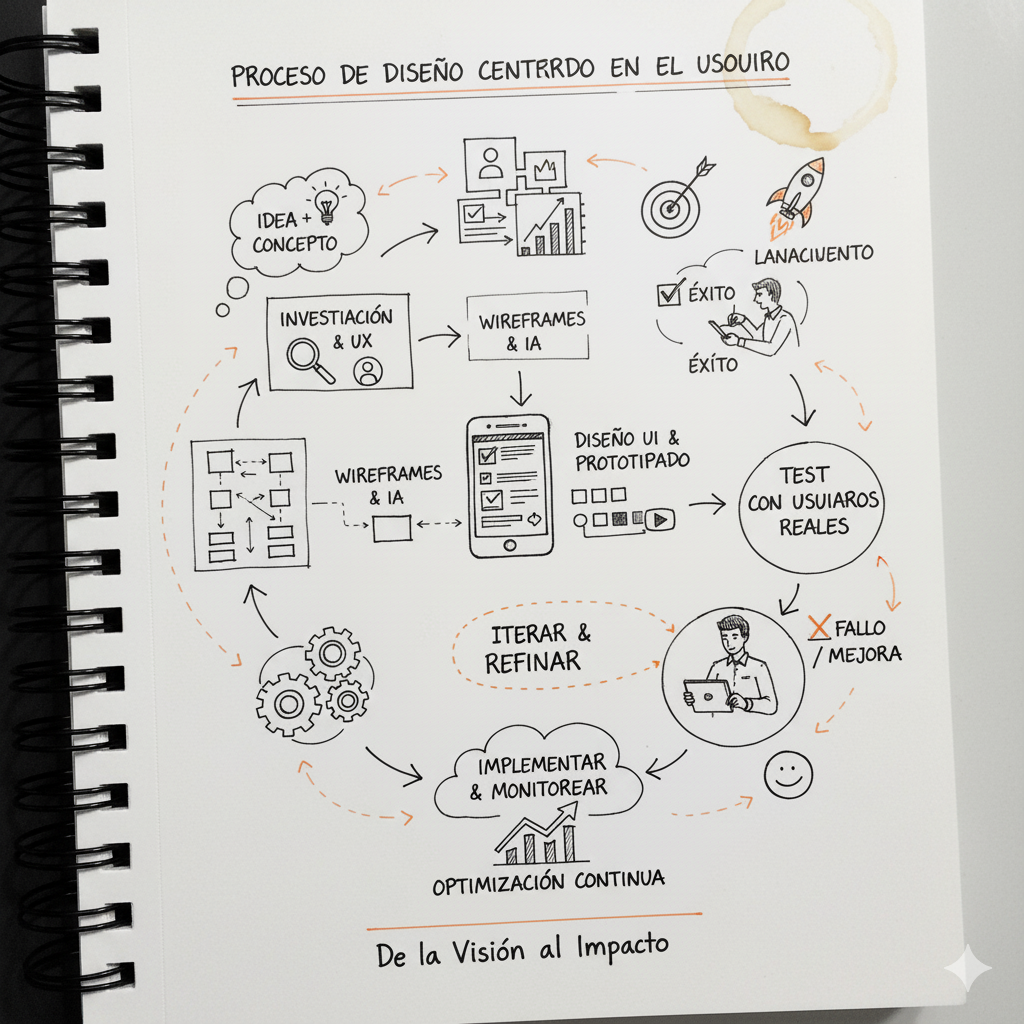 PROCESO DE DISEÑO CENTRRDO EN EL USOUIRO
IDEA +
CONCEPTO
LANACIUENTO
ÉXITO
ÉXÍTO
INVESTIACIÓN
& UX
WIREFRAMES
& IA
WIREFRAMES
& IA
DISEÑO UI &
PROTOTIPADO
TEST
CON USUIAROS
REALES
ITERAR &
REFINAR
X FALLO
/ MEJORA
IMPLEMENTAR
& MONITOREAR
OPTIMIZACIÓN CONTINUA
De la Visión al Impacto